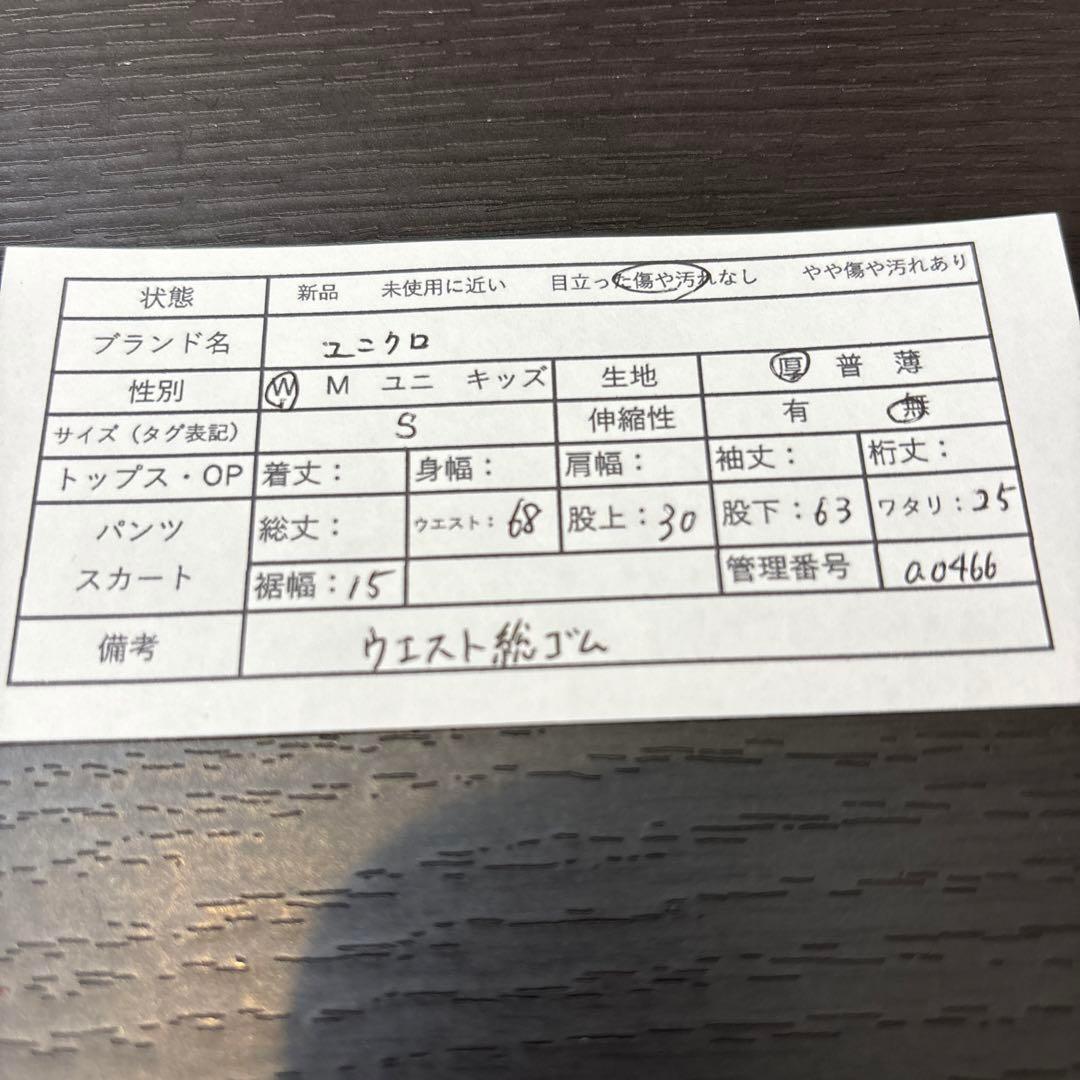 状態 新品 未使用に近い 目立った傷や汚れなし やや傷や汚れあり
ブランド名 ユニクロ
性別 W M ユニ キッズ 生地 厚 普 薄
サイズ（タグ表記） S 伸縮性 有 無
トップス・OP 着丈： 身幅： 肩幅： 袖丈： 裄丈：
パンツ 総丈： ウエスト：68 股上：30 股下：63 ワタリ：25
スカート 裾幅：15 管理番号 a0466
備考 ウエスト総ゴム